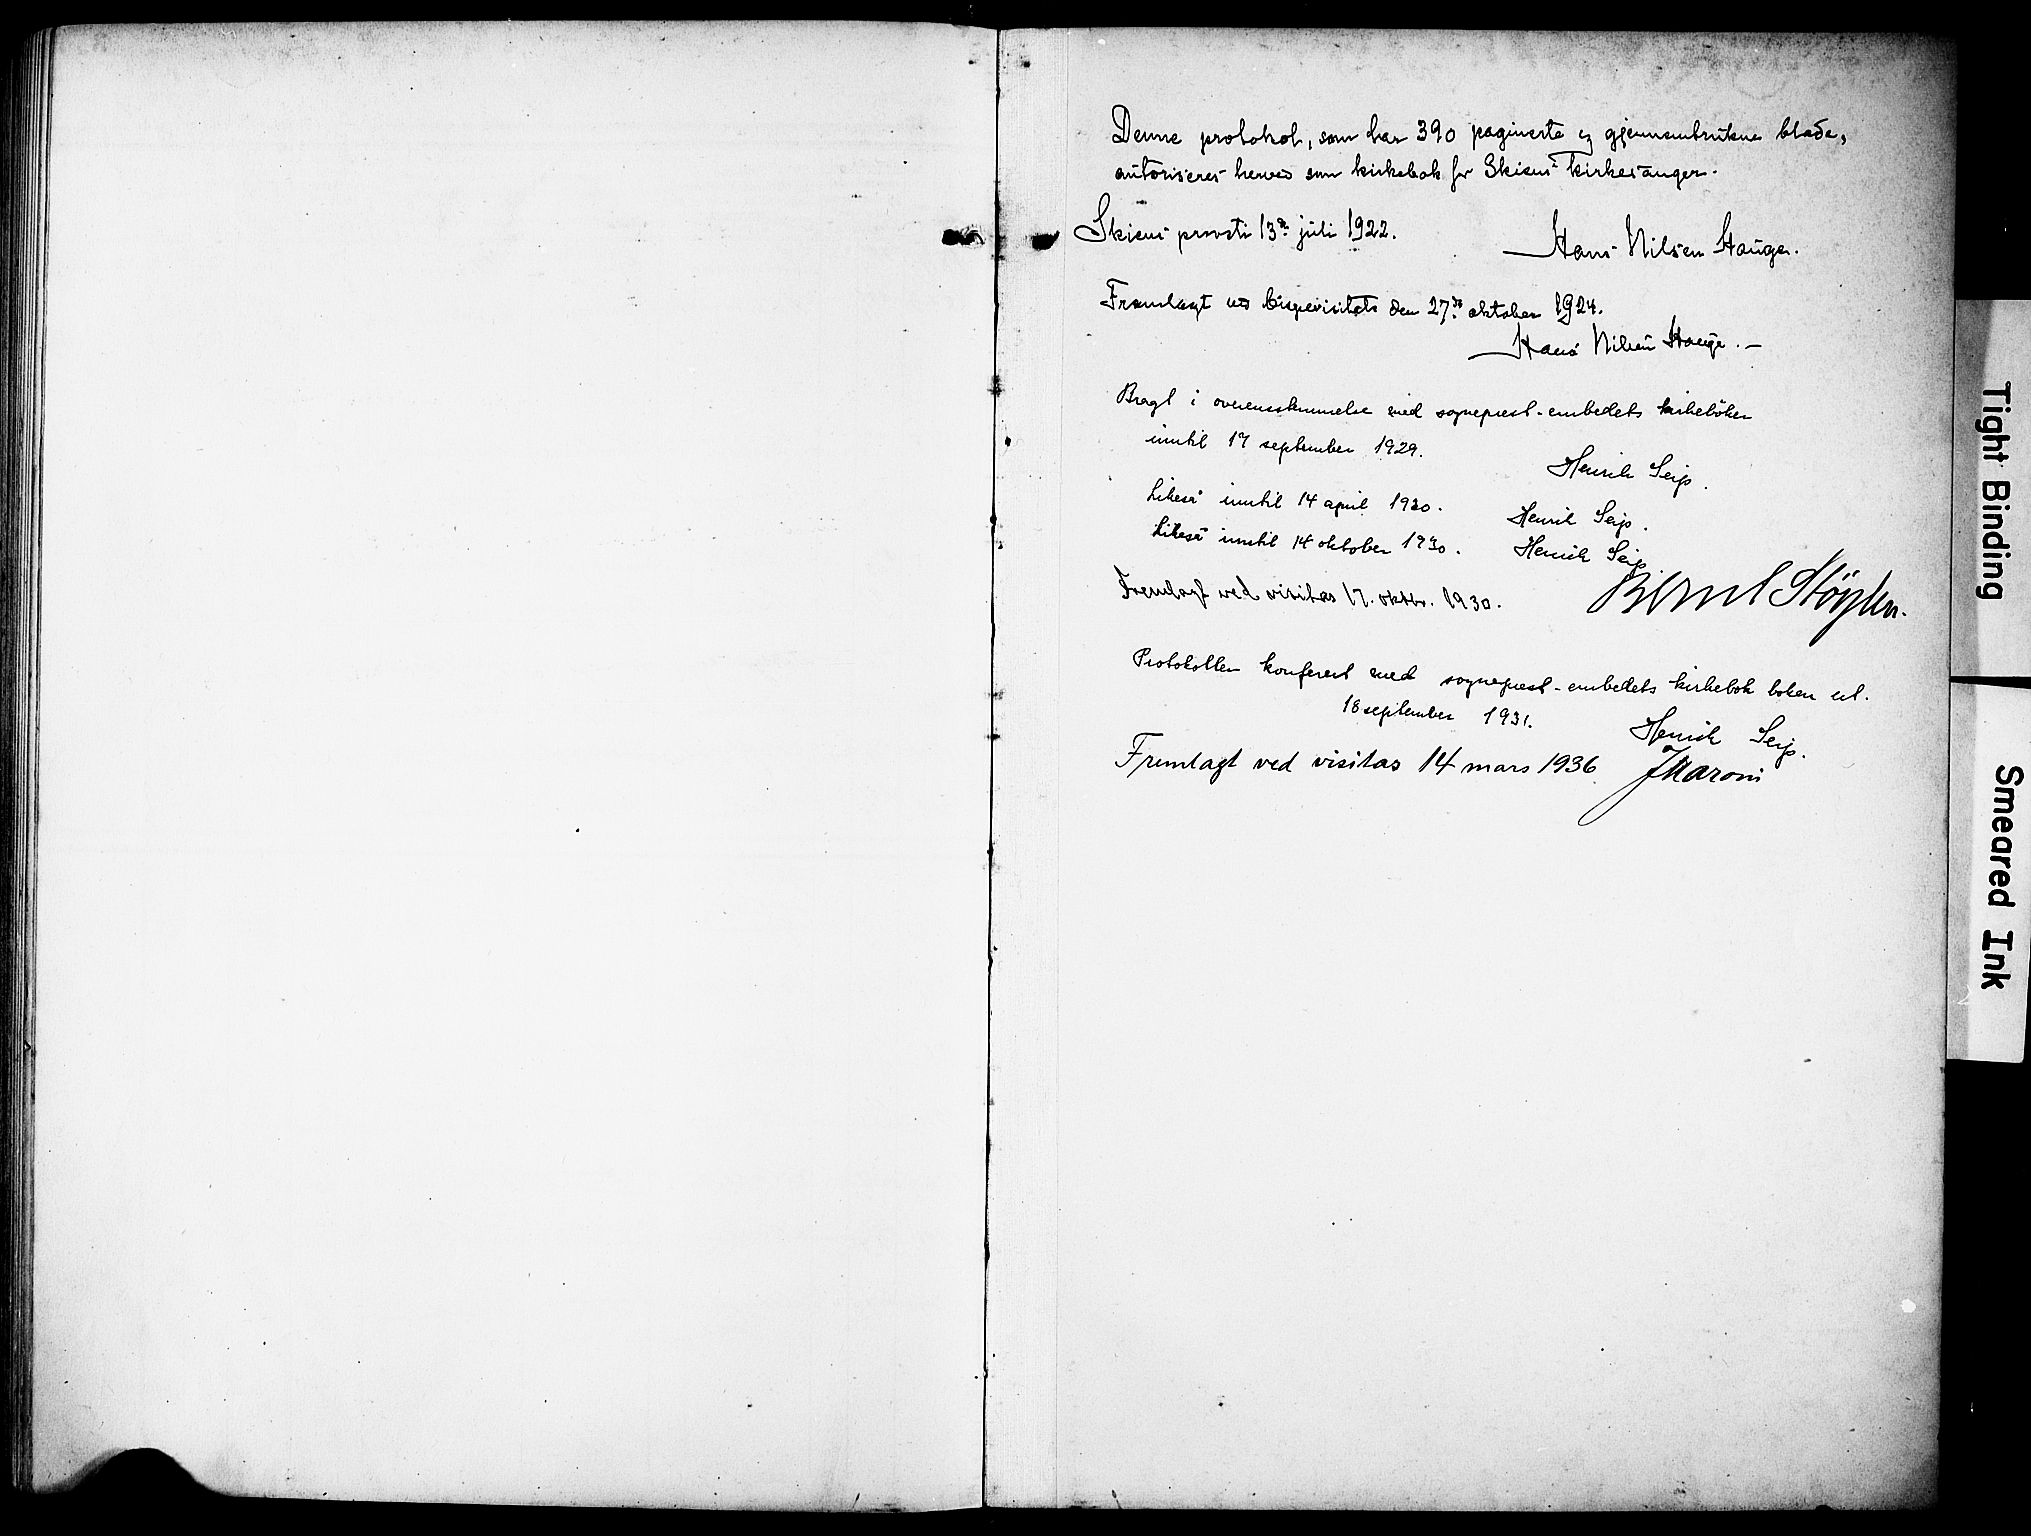 Denne protokol, som har 390 paginerte og gjennemtrukne blade,
autoriseres herved som kirkebok for Skiens kirkesanger.
Skiens provsti 13de juli 1922.
Hans Nilsen Hauge.
Fremlagt ved bispevisitats den 27de oktober 1924.
Hans Nilsen Hauge.—
Bragt i overensstemmelse med sogneprest-embedets kirkebøker
inntil 17 september 1929.
Henrik Seip.
Likeså inntil 14 april 1930. Henrik Seip.
Likeså inntil 14 oktober 1930. Henrik Seip.
Fremlagt ved visitas 17. oktbr. 1930. Bernt Støylen.
Protokollen konferert med sogneprest-embedets kirkebok
18 september 1931.
Henrik Seip.
Fremlagt ved visitas 14 mars 1936. J Maroni
Tight Binding
Smeared Ink